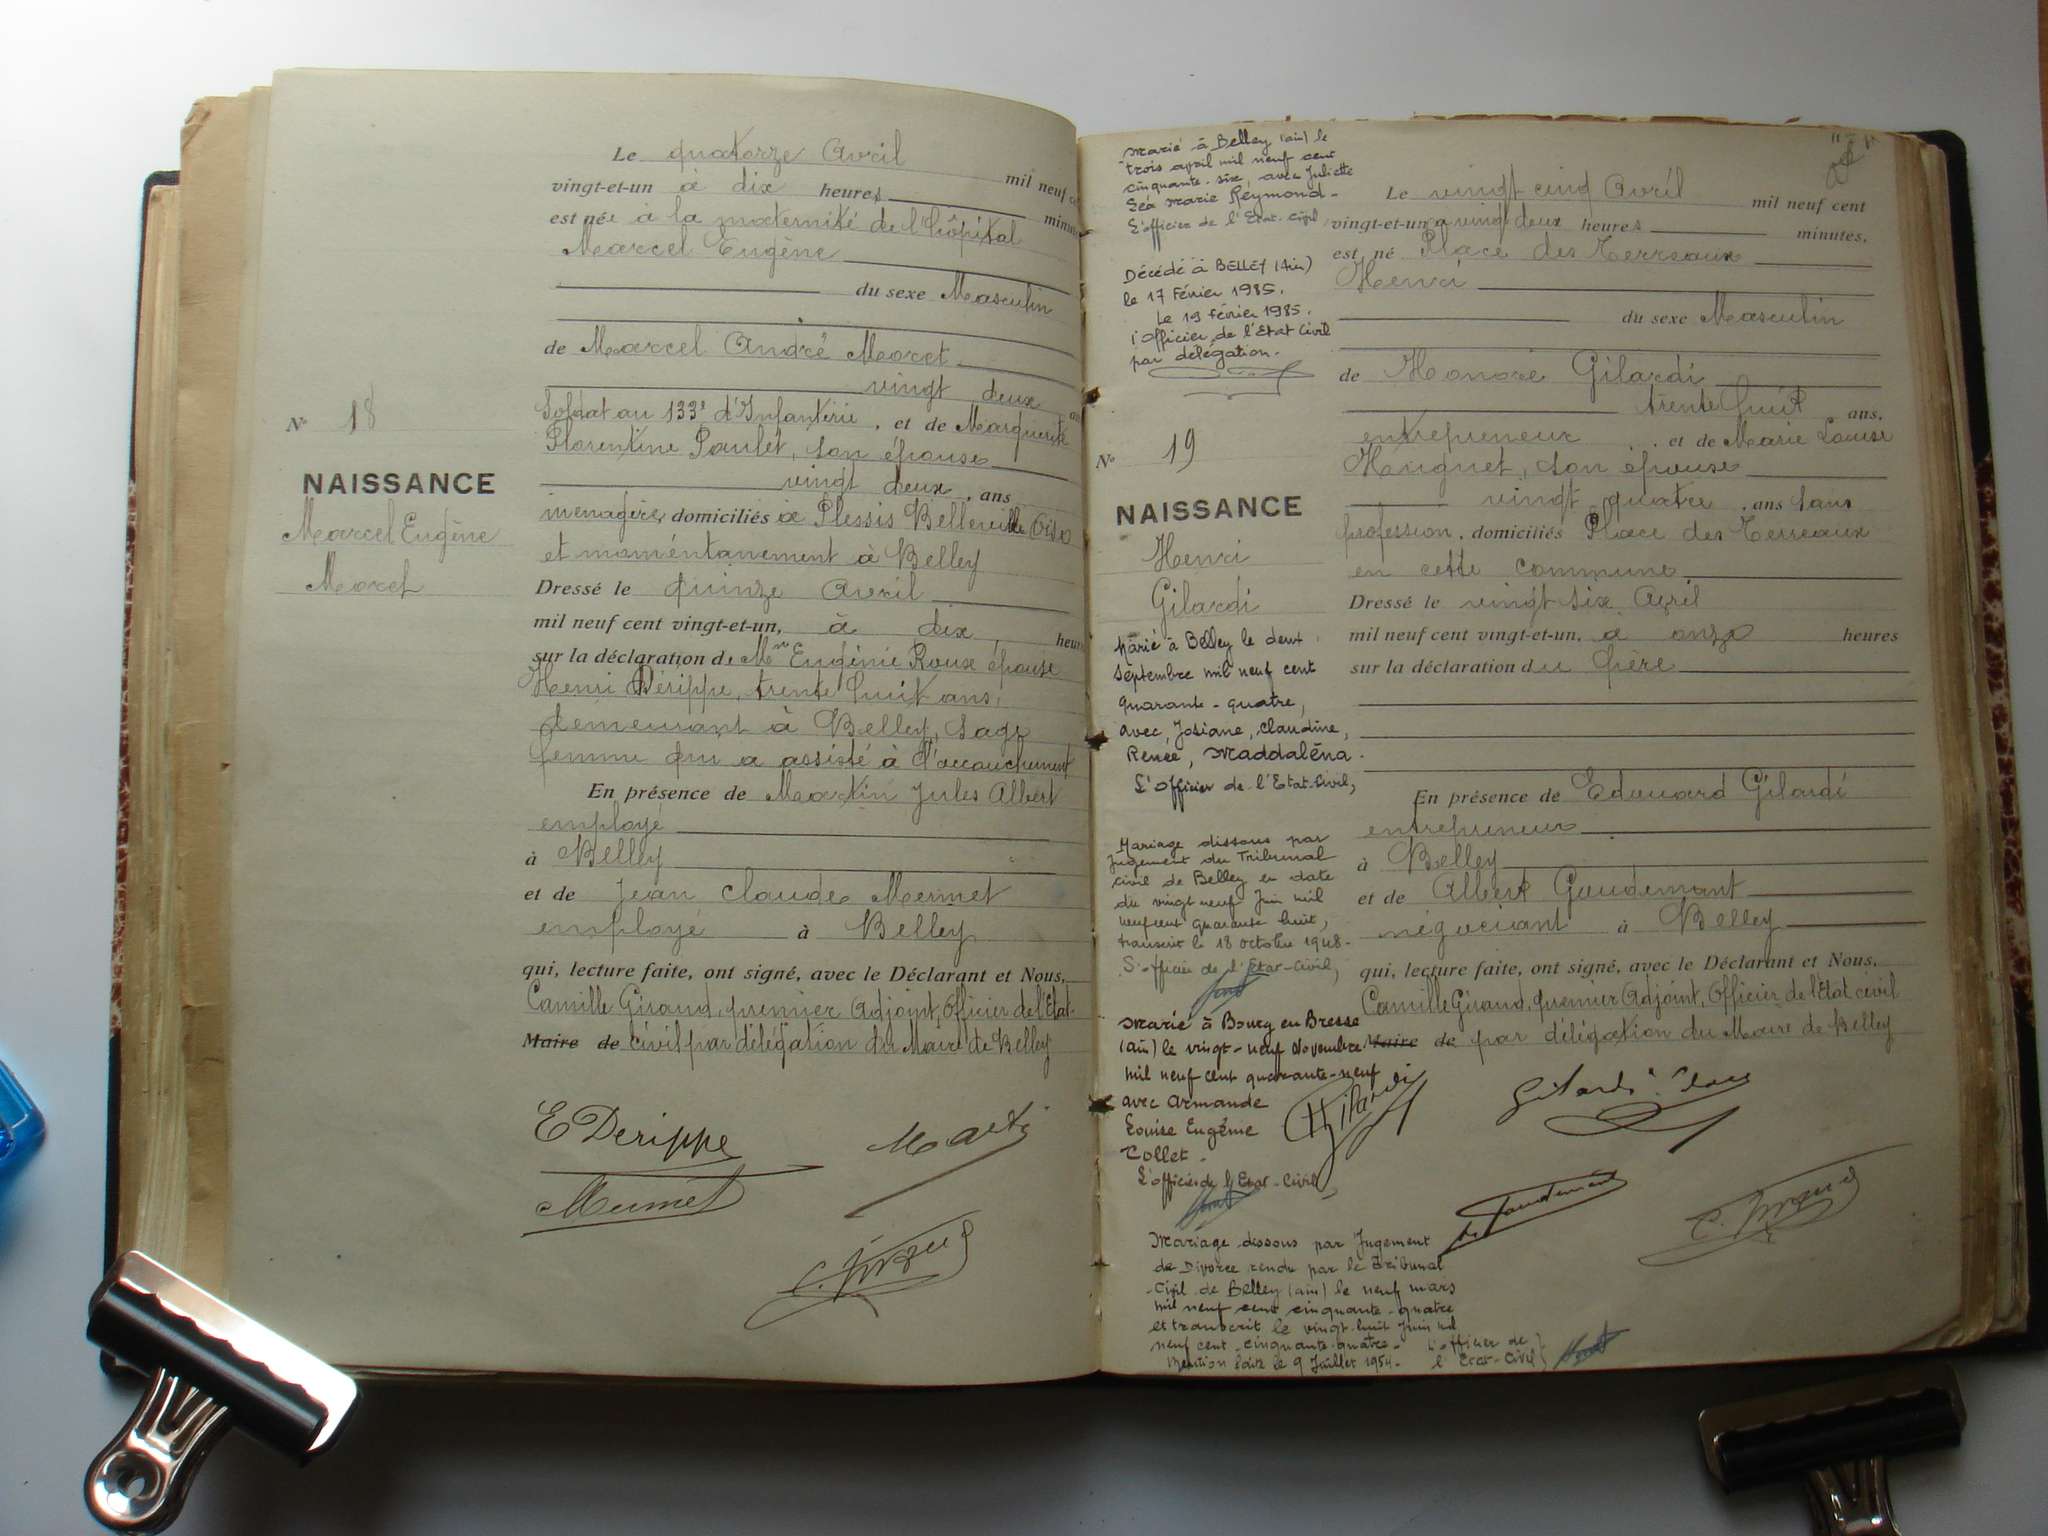 Le quatorze Avril mil neuf
vingt-et-un à dix heures minutes
est née à la maternité de l'hôpital
Marcel Eugène
du sexe Masculin
de Marcel André Moret
vingt deux
Soldat au 133e d'Infanterie, et de Marguerite
Florentine Paulet, son épouse
vingt deux, ans
ménagère, domiciliés à Plessis Belleville Oise
et momentanement à Belley
Dressé le quinze Avril
mil neuf cent vingt-et-un, à dix, heures
sur la déclaration de Mme Eugénie Roux épouse
Henri Dérippe, trente huit ans,
demeurant à Belley, Sage
femme qui a assisté à l'accouchement
En présence de Martin Jules Albert
employé
à Belley
et de Jean Claude Mermet
employé à Belley
qui, lecture faite, ont signé, avec le Déclarant et Nous,
Camille Giraud, premier Adjoint, Officier de l'Etat-
Maire de civil par délégation du Maire de Belley
E Derippe
N° 18
NAISSANCE
Marcel Eugène
Moret
Marié à Belley (ain) le
trois april mil neuf cent
cinquante-six, avec Juliette
Léa Marie Réymond-
L'officier de l'Etat-Civil,
Décédé à BELLEY (Ain)
le 17 Février 1985.
Le 19 février 1985.
l'Officier de l'Etat Civil
par délégation.
N° 19
NAISSANCE
Henri
Gilardi
Marié à Belley le deux
Septembre mil neuf cent
quarante-quatre,
avec, Josiane, Claudine,
Renée, Maddaléna.
L'Officier de l'Etat-Civil,
Mariage dissous par
Jugement du Tribunal
civil de Belley en date
du vingt neuf Juin mil
neuf cent quarante huit,
transcrit le 18 octobre 1948-
L'officier de l'Etat-Civil,
Marié à Bourg en Bresse
(ain) le vingt-neuf Novembre
mil neuf cent quarante-neuf
avec Armande
Louise Eugénie
Collet-
L'officier de l'Etat-Civil,
Mariage dissous par Jugement
de Divorce rendu par le Tribunal
Civil de Belley (ain) le neuf mars
mil neuf cent cinquante-quatre
et transcrit le vingt-huit Juin mil
neuf cent-cinquante-quatre- L'officier de
Mention faite le 9 Juillet 1954- l'Etat-Civil
Le vingt cinq Avril mil neuf cent
vingt-et-un à vingt deux heures minutes,
est né Place des Terreaux
Henri
du sexe Masculin
de Honoré Gilardi
trente huit, ans,
entrepreneur, et de Marie Louise
Huguet, son épouse
vingt quatre, ans Sans
profession, domiciliés Place des Terreaux
en cette commune
Dressé le vingt six Avril
mil neuf cent vingt-et-un, à onze heures
sur la déclaration du père
En présence de Edouard Gilardi
entrepreneur
à Belley
et de Albert Gaudemant
négociant à Belley
qui, lecture faite, ont signé, avec le Déclarant et Nous,
Camille Giraud, premier Adjoint, Officier de l'Etat civil
Maire de par délégation du Maire de Belley